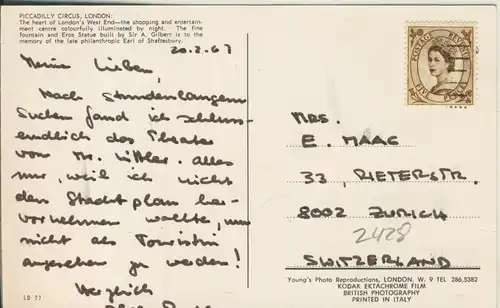 PICCADILLY CIRCUS, LONDON:
The heart of London's West End—the shopping and entertain-
ment centre colourfully illuminated by night. The fine
fountain and Eros Statue built by Sir A. Gilbert is to the
memory of the late philanthropic Earl of Shaftesbury.
20.2.67
Meine Lieben,
Nach stundenlangem
Suchen fand ich schluss-
endlich das Theater
von Mr. Littler. Alles
nur, weil ich nicht
den Stadtplan her-
vornehmen wollte, um
nicht als Touristin
angesehen zu werden!
Herzlich
LD 77
POSTAGE REVENUE
MRS.
E. MAAG
33, RIETERSTR.
8002 ZURICH
2428
SWITZERLAND
Young's Photo Reproductions, LONDON, W. 9 TEL 286,5382
KODAK EKTACHROME FILM
BRITISH PHOTOGRAPHY
PRINTED IN ITALY